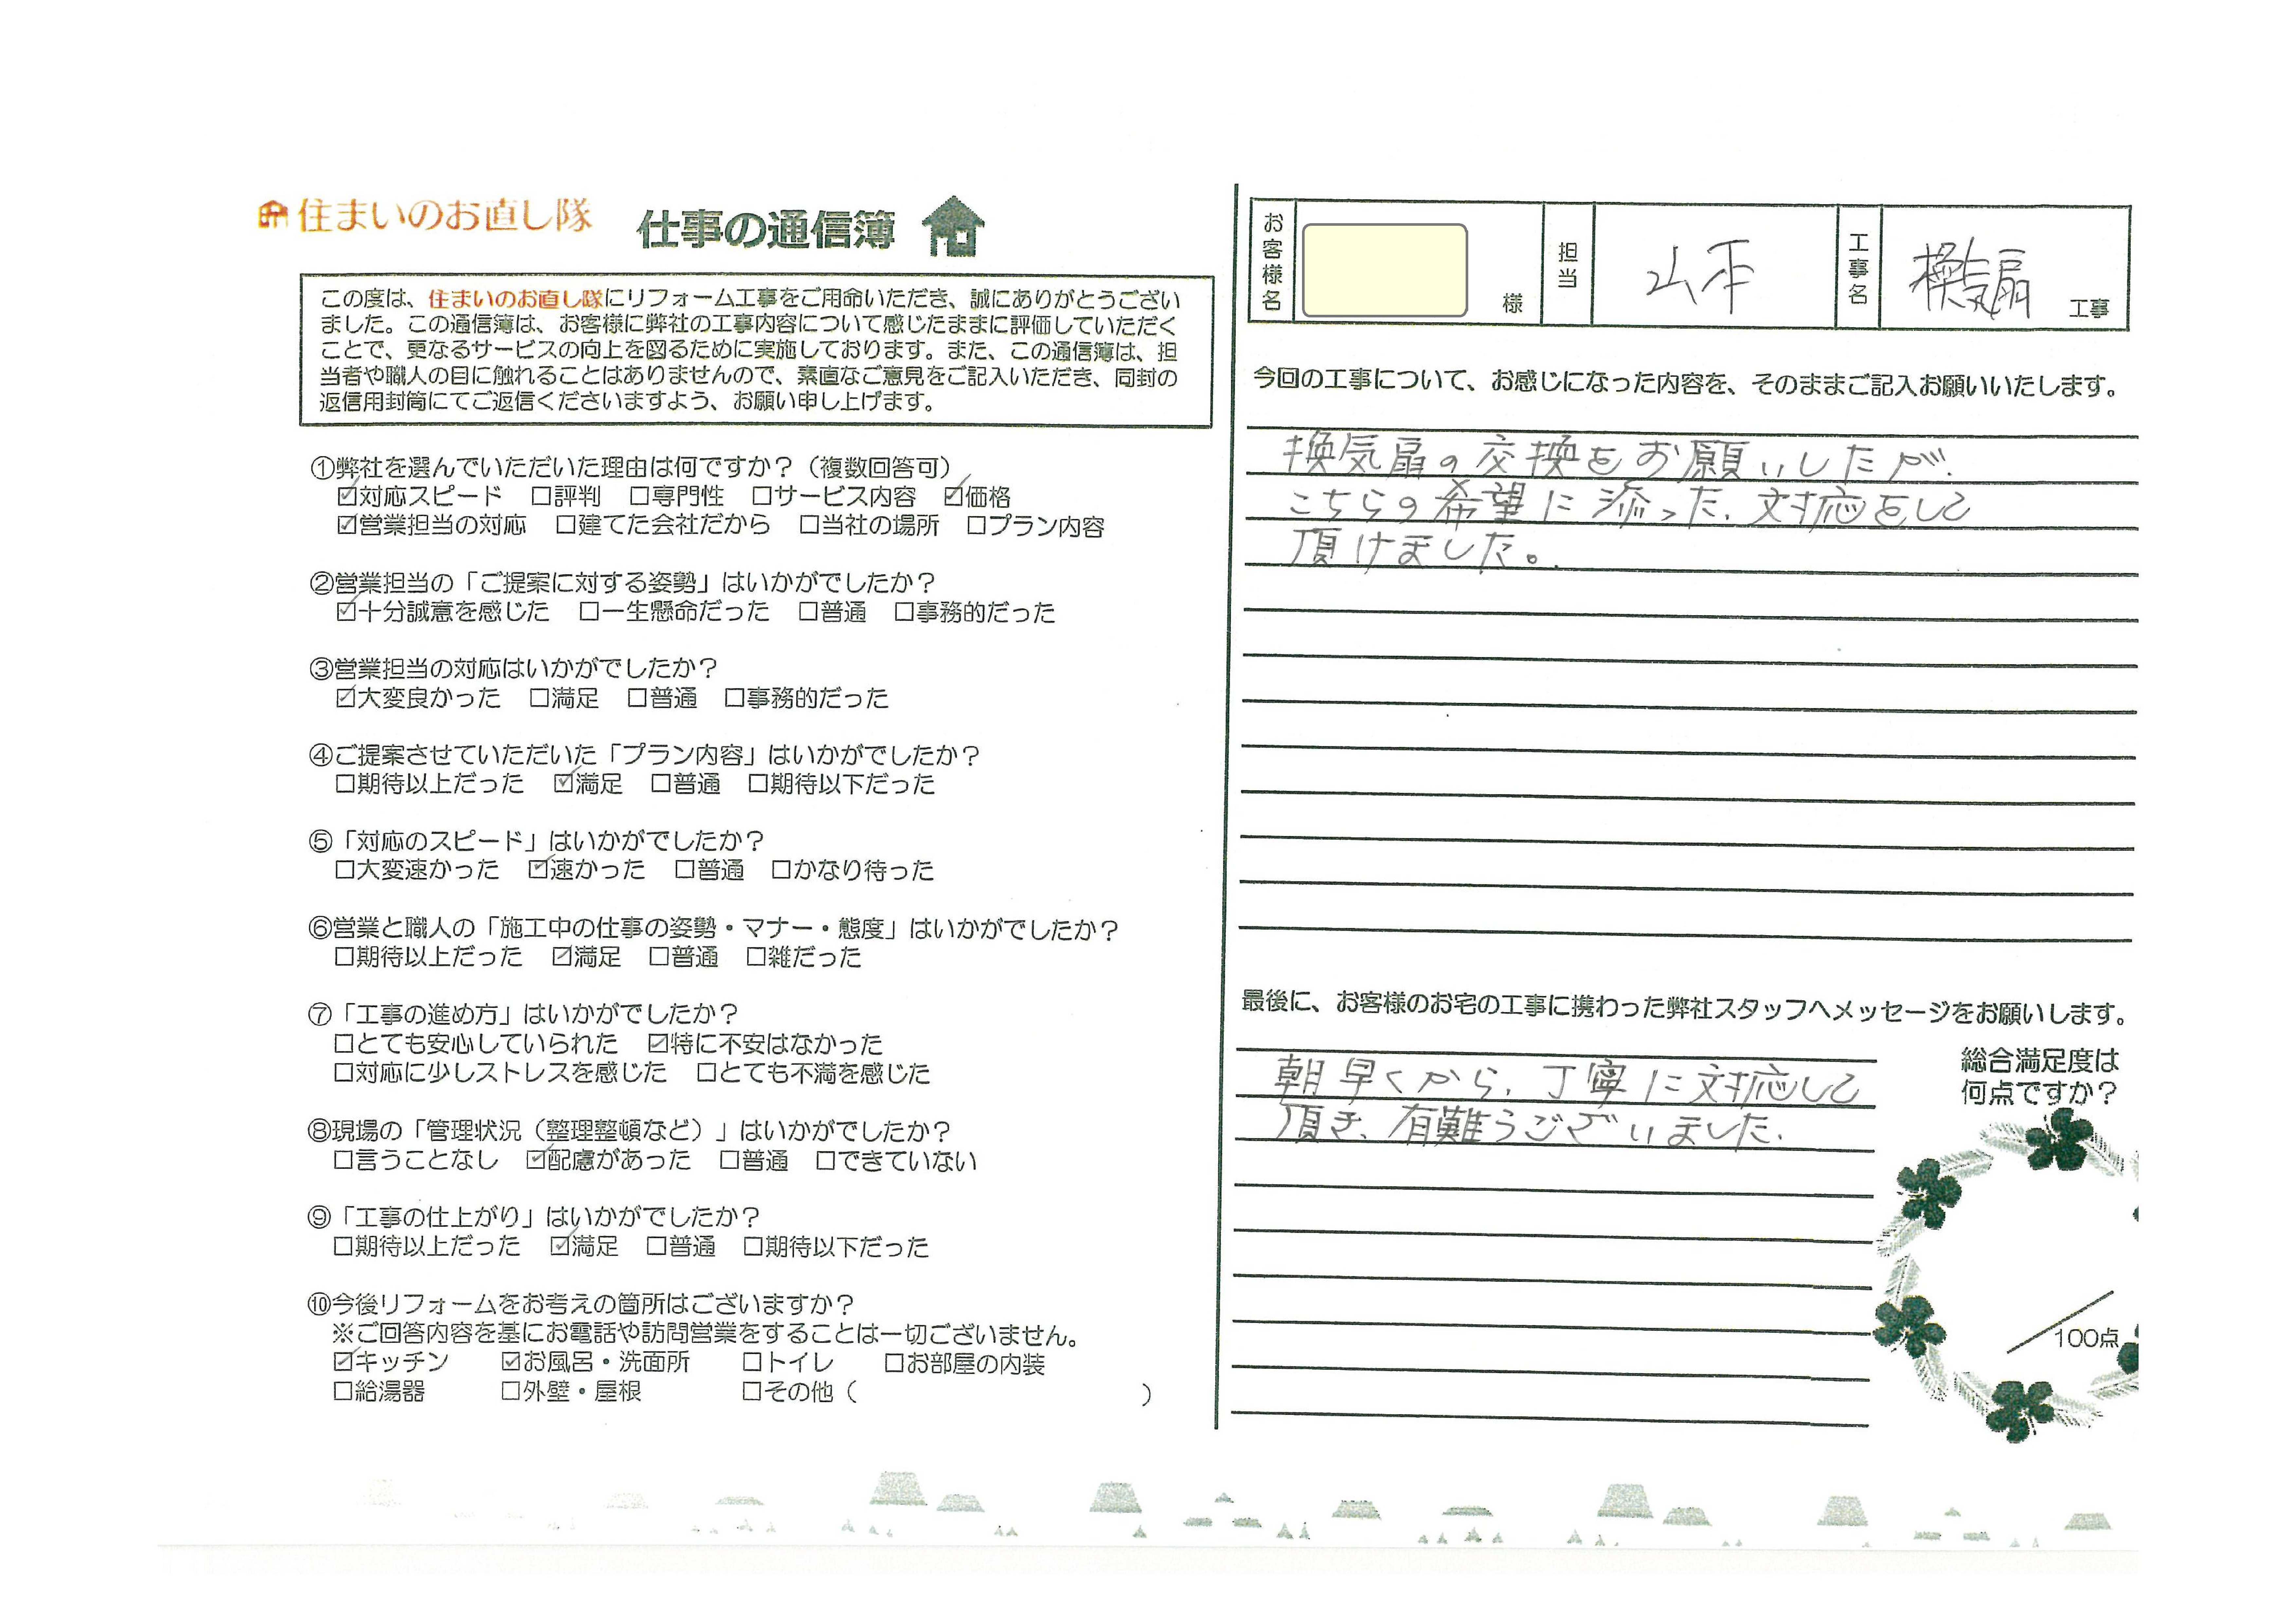 住まいのお直し隊 仕事の通信簿
この度は、住まいのお直し隊にリフォーム工事をご用命いただき、誠にありがとうござい
ました。この通信簿は、お客様に弊社の工事内容について感じたままに評価していただく
ことで、更なるサービスの向上を図るために実施しております。また、この通信簿は、担
当者や職人の目に触れることはありませんので、素直なご意見をご記入いただき、同封の
返信用封筒にてご返信くださいますよう、お願い申し上げます。
①弊社を選んでいただいた理由は何ですか？（複数回答可）
☑対応スピード □評判 □専門性 □サービス内容 ☑価格
☑営業担当の対応 □建てた会社だから □当社の場所 □プラン内容
②営業担当の「ご提案に対する姿勢」はいかがでしたか？
☑十分誠意を感じた □一生懸命だった □普通 □事務的だった
③営業担当の対応はいかがでしたか？
☑大変良かった □満足 □普通 □事務的だった
④ご提案させていただいた「プラン内容」はいかがでしたか？
□期待以上だった ☑満足 □普通 □期待以下だった
⑤「対応のスピード」はいかがでしたか？
□大変速かった ☑速かった □普通 □かなり待った
⑥営業と職人の「施工中の仕事の姿勢・マナー・態度」はいかがでしたか？
□期待以上だった ☑満足 □普通 □雑だった
⑦「工事の進め方」はいかがでしたか？
□とても安心していられた ☑特に不安はなかった
□対応に少しストレスを感じた □とても不満を感じた
⑧現場の「管理状況（整理整頓など）」はいかがでしたか？
□言うことなし ☑配慮があった □普通 □できていない
⑨「工事の仕上がり」はいかがでしたか？
□期待以上だった ☑満足 □普通 □期待以下だった
⑩今後リフォームをお考えの箇所はございますか？
※ご回答内容を基にお電話や訪問営業をすることは一切ございません。
☑キッチン ☑お風呂・洗面所 □トイレ □お部屋の内装
□給湯器 □外壁・屋根 □その他（ ）
お客様名 様 担当 山本 工事名 換気扇 工事
今回の工事について、お感じになった内容を、そのままご記入お願いいたします。
換気扇の交換をお願いしたが、
こちらの希望に添った、対応をして
頂けました。
最後に、お客様のお宅の工事に携わった弊社スタッフへメッセージをお願いします。
朝早くから、丁寧に対応して
頂き、有難うございました。
総合満足度は
何点ですか？
／100点